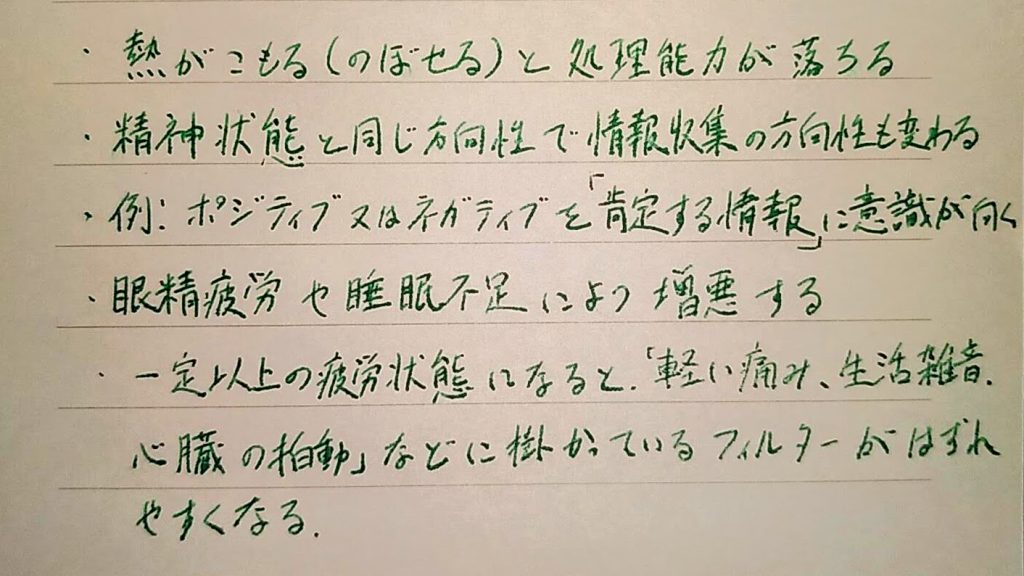 ・熱がこもる(のぼせる)と処理能力が落ちる
・精神状態と同じ方向性で情報収集の方向性も変わる
・例:ポジティブ又はネガティブを「肯定する情報」に意識が向く
・眼精疲労や睡眠不足により増悪する
・一定以上の疲労状態になると、「軽い痛み、生活雑音、
心臓の拍動」などに掛かっているフィルターがはずれ
やすくなる.